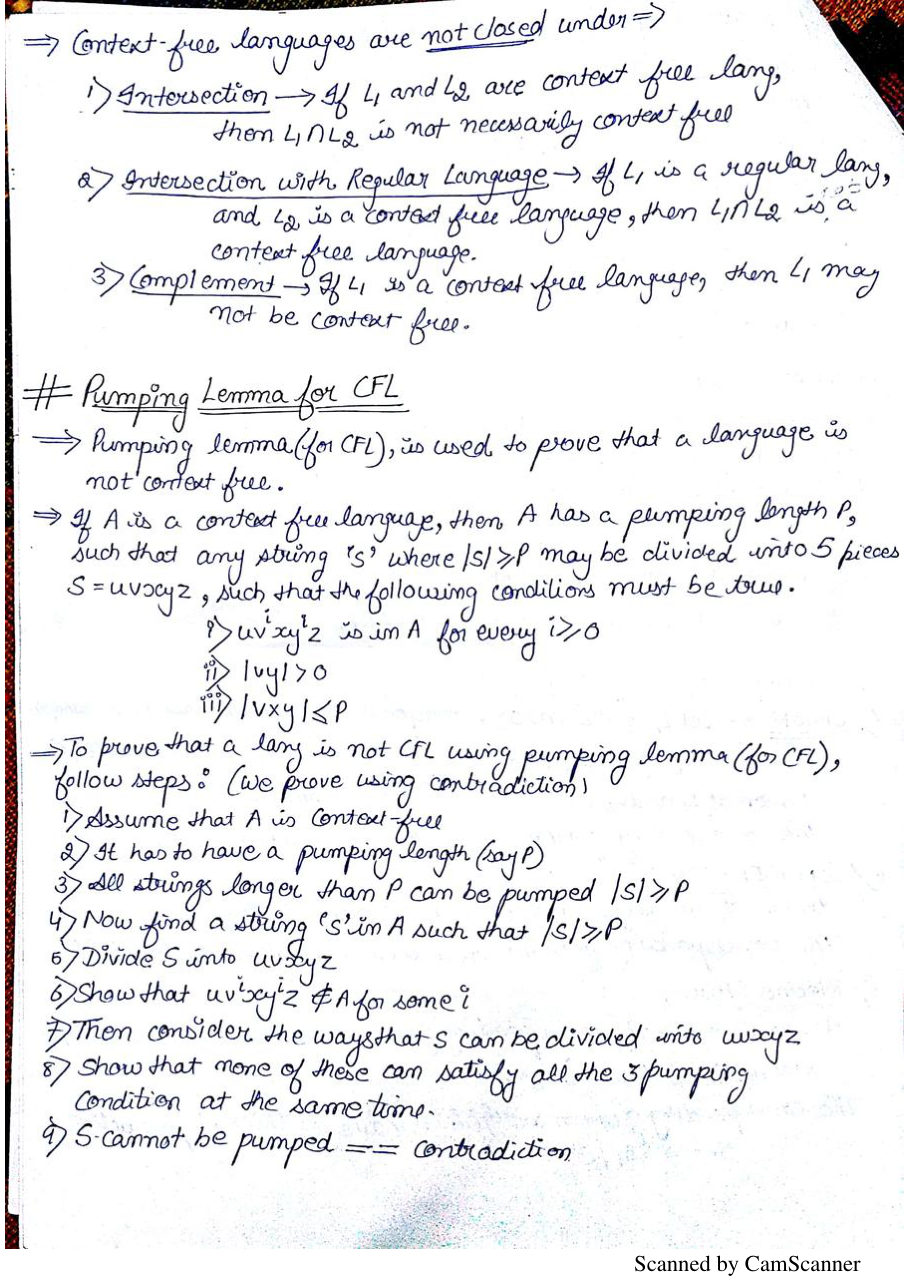 ⇒ Context-free languages are not closed under ⇒
1) Intersection → If L₁ and L₂ are context free lang,
then L₁∩L₂ is not necessarily context free
2) Intersection with Regular Language → If L₁ is a regular lang,
and L₂ is a context free language, then L₁∩L₂ is a
context free language.
3) Complement → If L₁ is a context free language, then L₁ may
not be context free.
# Pumping Lemma for CFL
⇒ Pumping lemma (for CFL), is used to prove that a language is
not context free.
⇒ If A is a context free language, then A has a pumping length P,
such that any string 'S' where |S|≥P may be divided into 5 pieces
S = uvxyz, such that the following conditions must be true.
i) uvⁱxyⁱz is in A for every i≥0
ii) |vy|>0
iii) |vxy|≤P
⇒ To prove that a lang is not CFL using pumping lemma (for CFL),
follow steps: (we prove using contradiction)
1) Assume that A is Context-free
2) It has to have a pumping length (say P)
3) All strings longer than P can be pumped |S|≥P
4) Now find a string 'S' in A such that |S|≥P
5) Divide S into uvxyz
6) Show that uvⁱxyⁱz ∉ A for some i
7) Then consider the ways that S can be divided into uvxyz
8) Show that none of these can satisfy all the 3 pumping
Condition at the same time.
9) S cannot be pumped == contradiction
Scanned by CamScanner